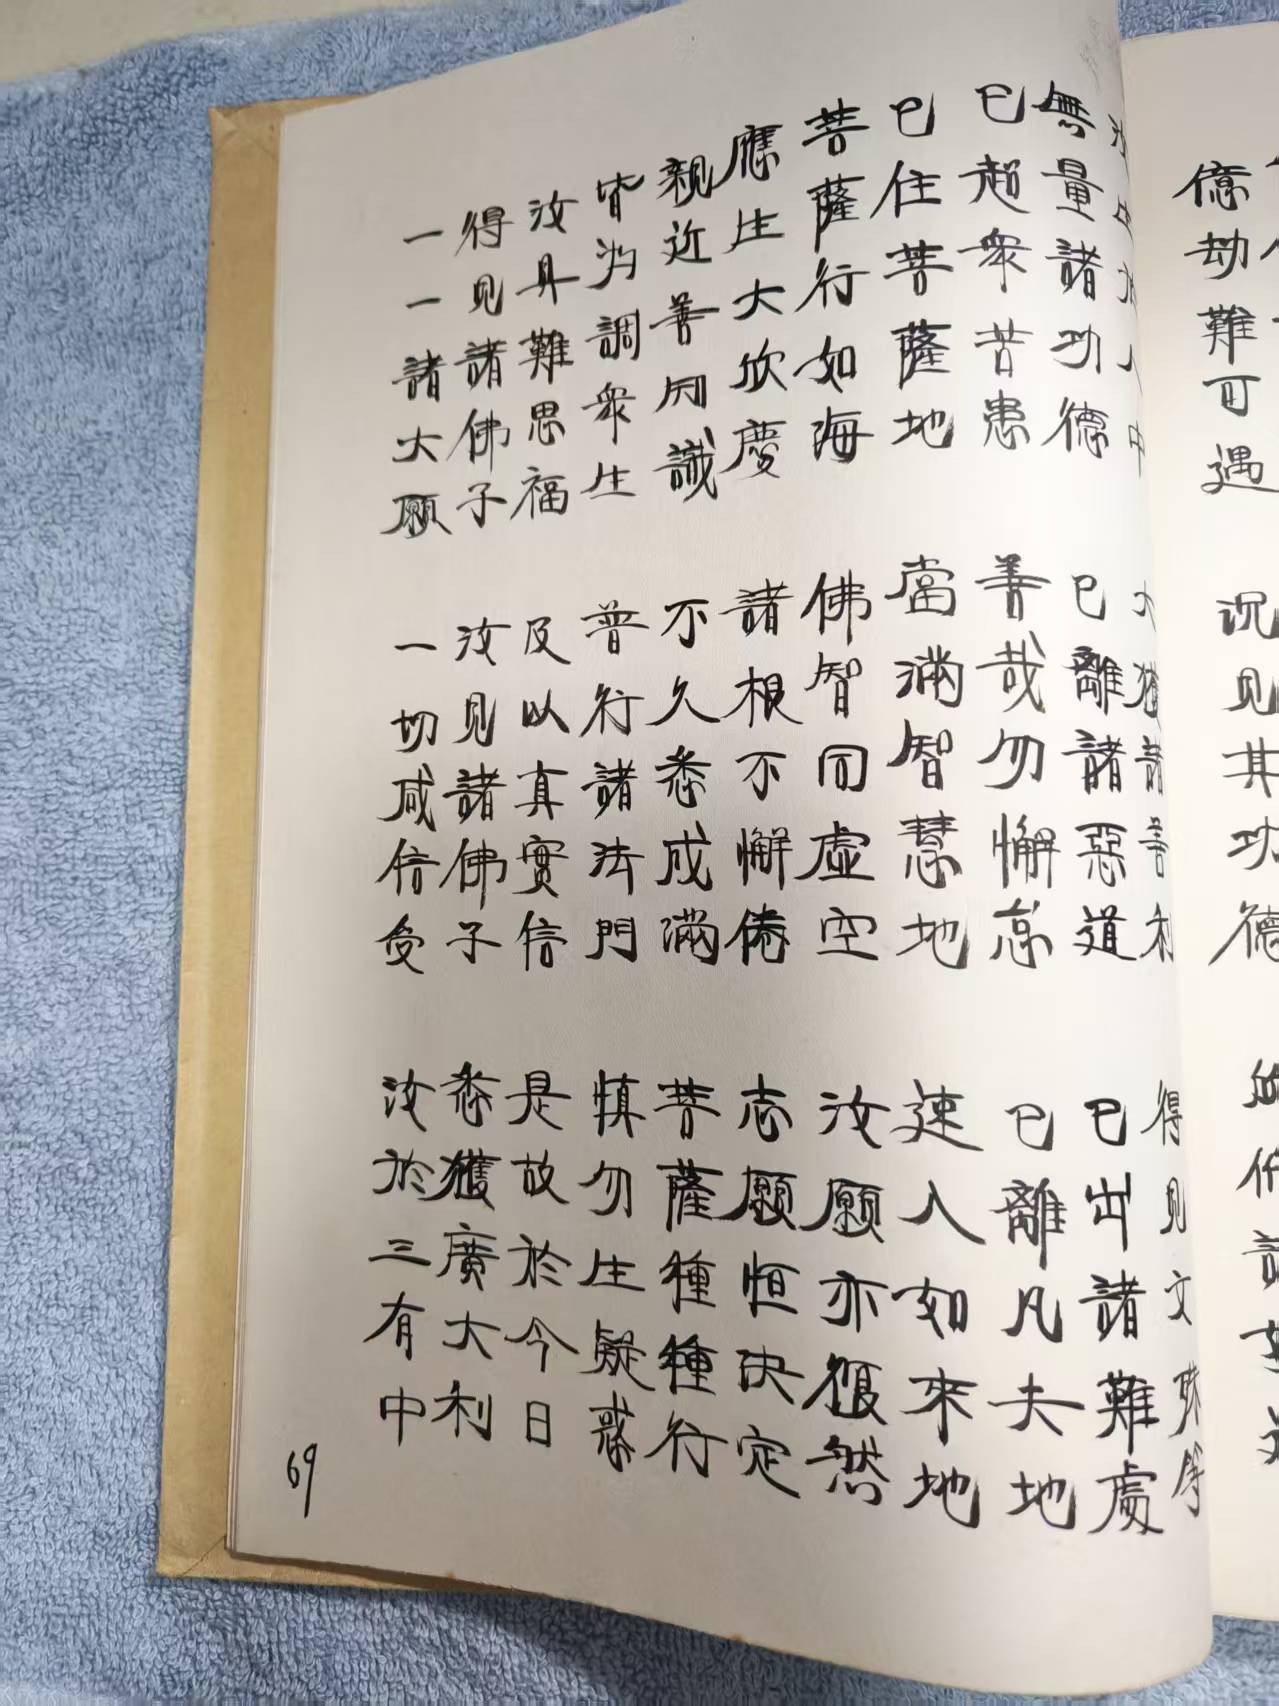 億劫難可遇 况见其功德
汝生於人中 大獲諸善利 得见文殊等
無量諸功德 已離諸惡道 已出諸難處
已超衆苦患 善哉勿懈怠 已離凡夫地
已住菩薩地 當滿智慧地 速入如來地
菩薩行如海 佛智同虛空 汝願亦復然
應生大欣慶 諸根不懈倦 志願恒決定
親近善知識 不久悉成滿 菩薩種種行
皆为調衆生 普行諸法門 慎勿生疑惑
汝具難思福 及以真實信 是故於今日
得见諸佛子 汝见諸佛子 悉獲廣大利
一一諸大願 一切咸信受 汝於三有中
69